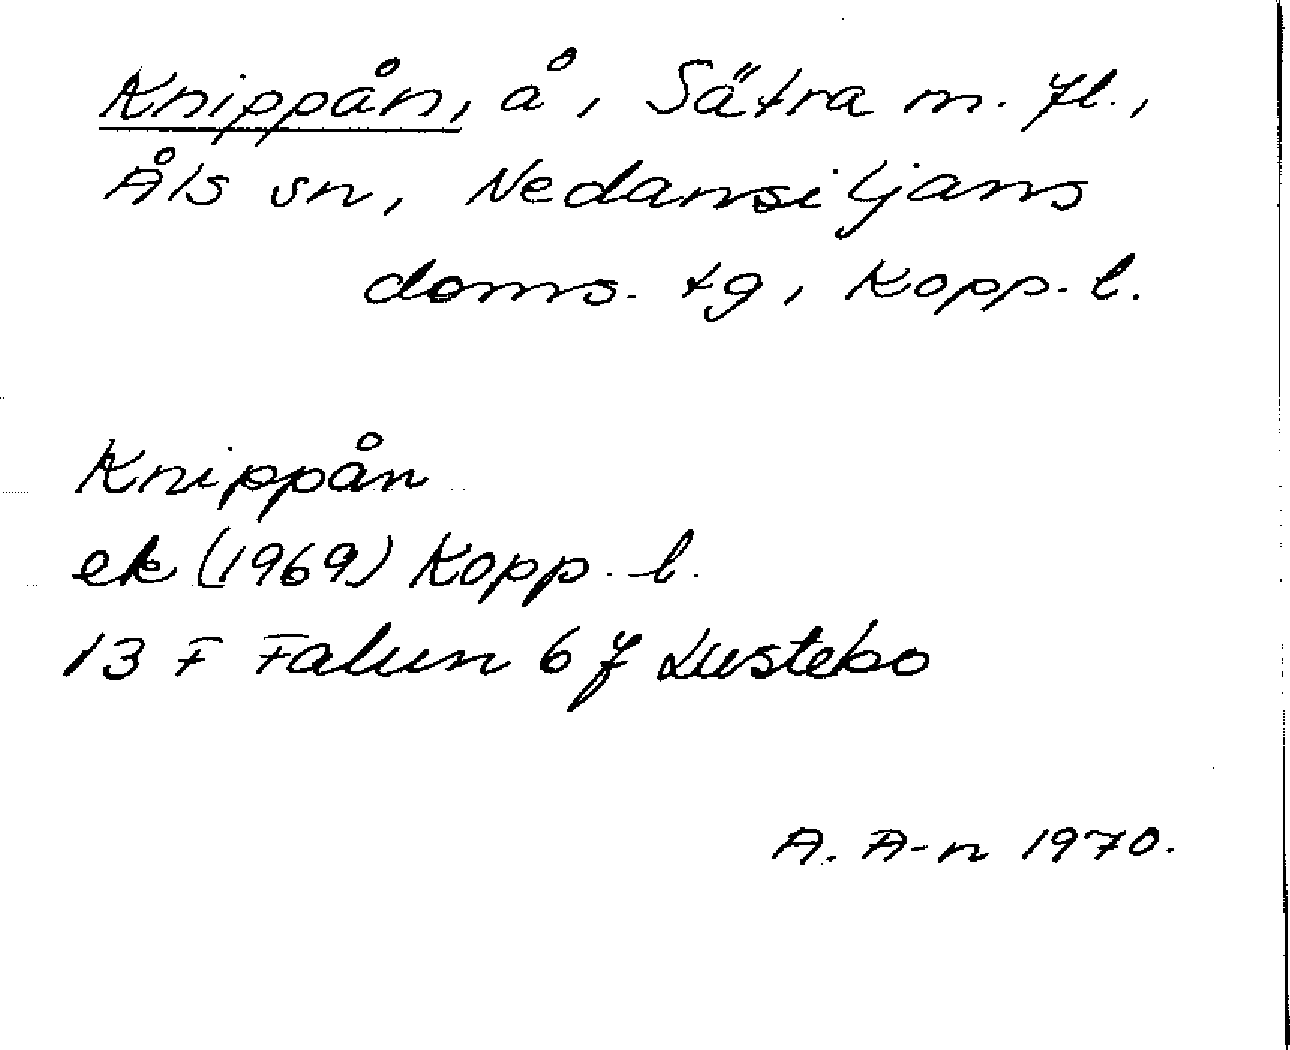 Knippån, å, Sätra m. fl.,
Åls sn, Nedansiljans
doms. tg, Kopp. l.
Knippån
ek (1969) Kopp. l.
13 F Falun 6 f Lustebo
A. A-n 1970.